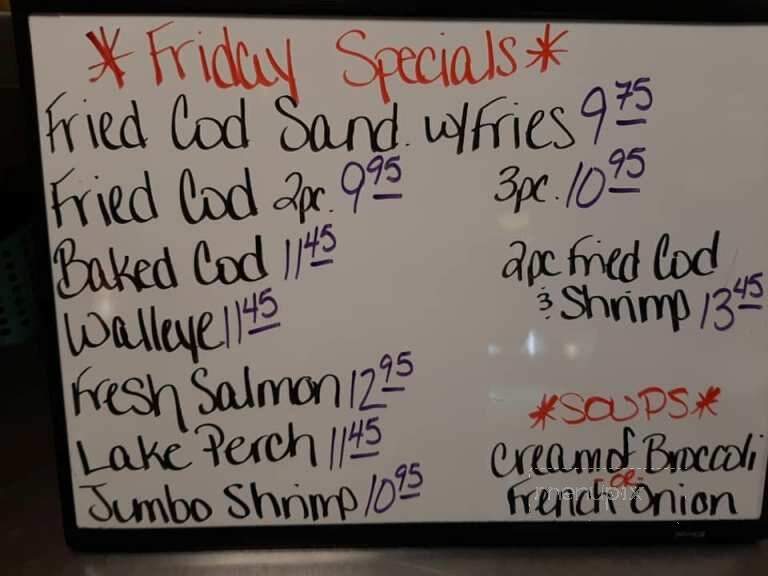 *Friday Specials*
Fried Cod Sand. w/Fries 9 75
Fried Cod 2pc. 9 95 3pc. 10 95
Baked Cod 11 45
Walleye 11 45
Fresh Salmon 12 95
Lake Perch 11 45
Jumbo Shrimp 10 95
2pc Fried Cod
& Shrimp 13 45
*SOUPS*
Cream of Broccoli
-OR-
French Onion
manupix